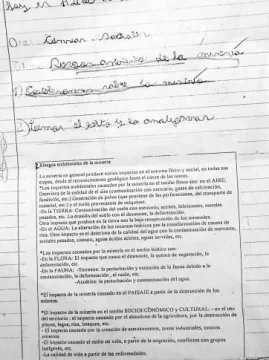 Riesgos ambientales de la minería
1) Cuestionarios sobre la minería
2) Leemos el texto y lo analizamos
Riesgos ambientales de la minería
La minería en general produce varios impactos en el entorno físico y social, en todas sus
etapas, desde el reconocimiento geológico hasta el cierre de las minas.
*Los impactos ambientales causados por la minería en el medio físico son: en el AIRE:
Deterioro de la calidad de el aire (contaminación con mercurio, gases de calcinación,
fundición, etc.) Generación de polvo (que proviene de las perforaciones, del transporte de
material, etc.) y el ruido proveniente de máquinas.
-En la TIERRA: Contaminación del suelo con mercurio, aceites, lubricantes, metales
pesados, etc. La erosión del suelo con el desmonte, la deforestación.
Otro impacto que produce en la tierra son la baja recuperación de los minerales.
-En el AGUA: La alteración de los recursos hídricos por la transformación de cauces de
ríos. Otro impacto es el deterioro de la calidad del agua por la contaminación de mercurio,
metales pesados, cianuro, aguas ácidas, aceites, aguas servidas, etc.
*Los impactos causados por la minería en el medio biótico son:
-En la FLORA: El impacto que causa el desmonte, la quema de vegetación, la
deforestación, etc.
-En la FAUNA: -Terrestre: la perturbación y extinción de la fauna debido a la
contaminación, la deforestación, el ruido, etc.
-Acuática: la perturbación y contaminación del agua.
*El impacto de la minería causado en el PAISAJE a partir de la destrucción de los
mismos.
*El impacto de la minería en el medio SOCIOECONÓMICO y CULTURAL: - en el uso
del territorio: el impacto causado por el abandono de la agricultura, por la destrucción de
playas, lagos, ríos, bosques, etc.
*El impacto causado por la creación de asentamientos, zonas industriales, centros
mineros.
-El impacto causado en el estilo de vida, a partir de la migración, conflictos con grupos
indígenas, etc.
-La calidad de vida a partir de las enfermedades.